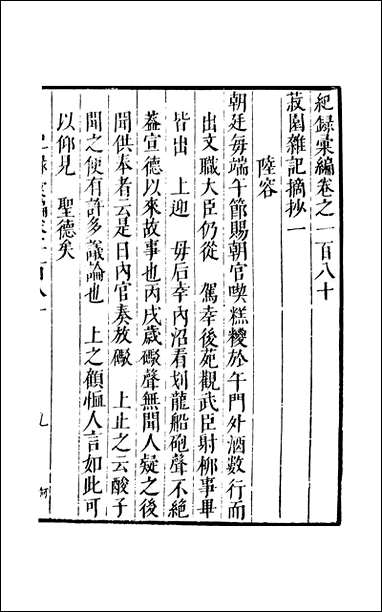 紀録彙編卷之一百八十
菽園雜記摘抄一
陸容
朝廷每端午節賜朝官喫糕糉於午門外酒數行而
出文職大臣仍從 駕幸後苑觀武臣射柳事畢
皆出 上迎 母后幸內沼看划龍船砲聲不絕
葢宣德以來故事也丙戌歲礮聲無聞人疑之後
聞供奉者云是日內官奏放礮 上止之云酸子
聞之便有許多議論也 上之顧恤人言如此可
以仰見 聖德矣